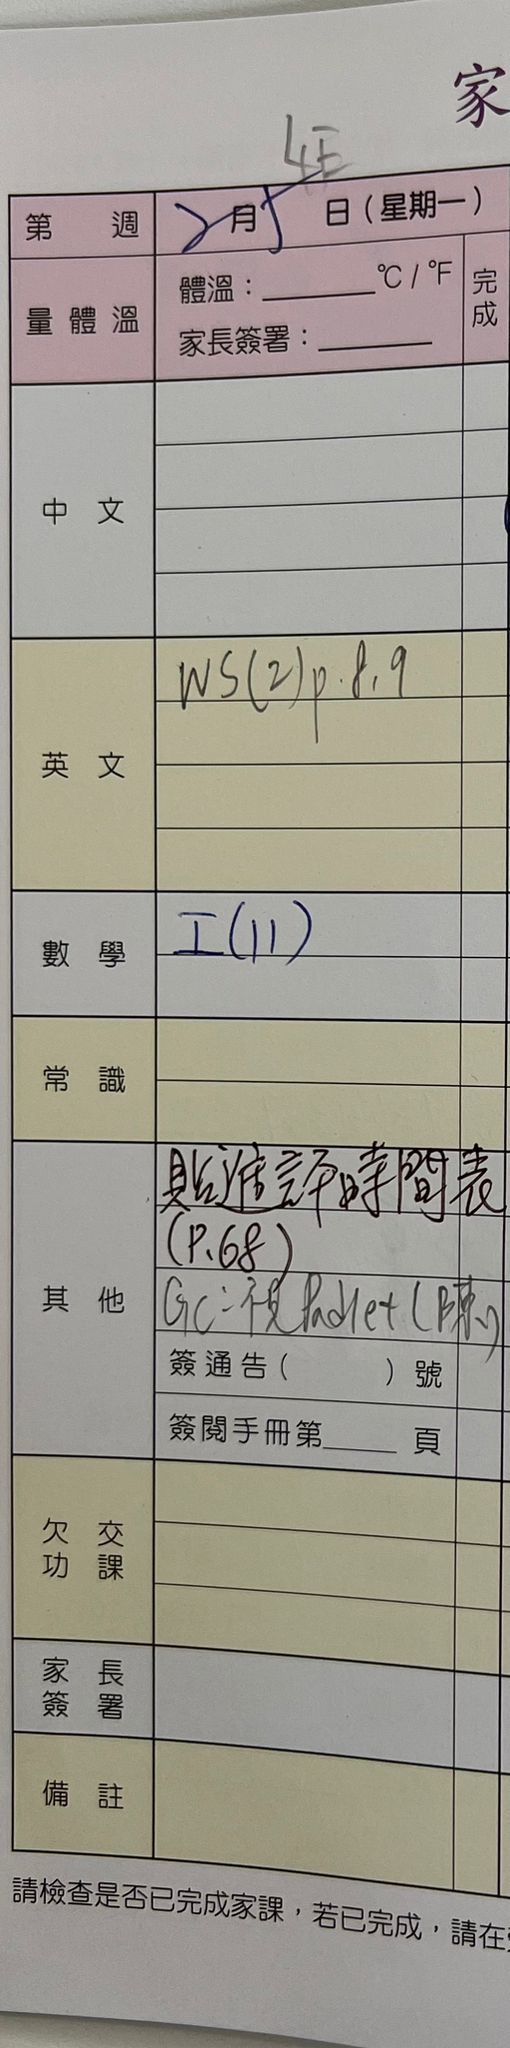 家
4E
第 週 2月5日(星期一)
量體溫 體溫:______℃/℉ 完成
家長簽署:______
中文
英文 WS(2)p.8,9
數學 工(11)
常識
其他 貼進評時間表
(P.68)
GC:視Padlet(陳)
簽通告( )號
簽閱手冊第____頁
欠交功課
家長簽署
備註
請檢查是否已完成家課,若已完成,請在